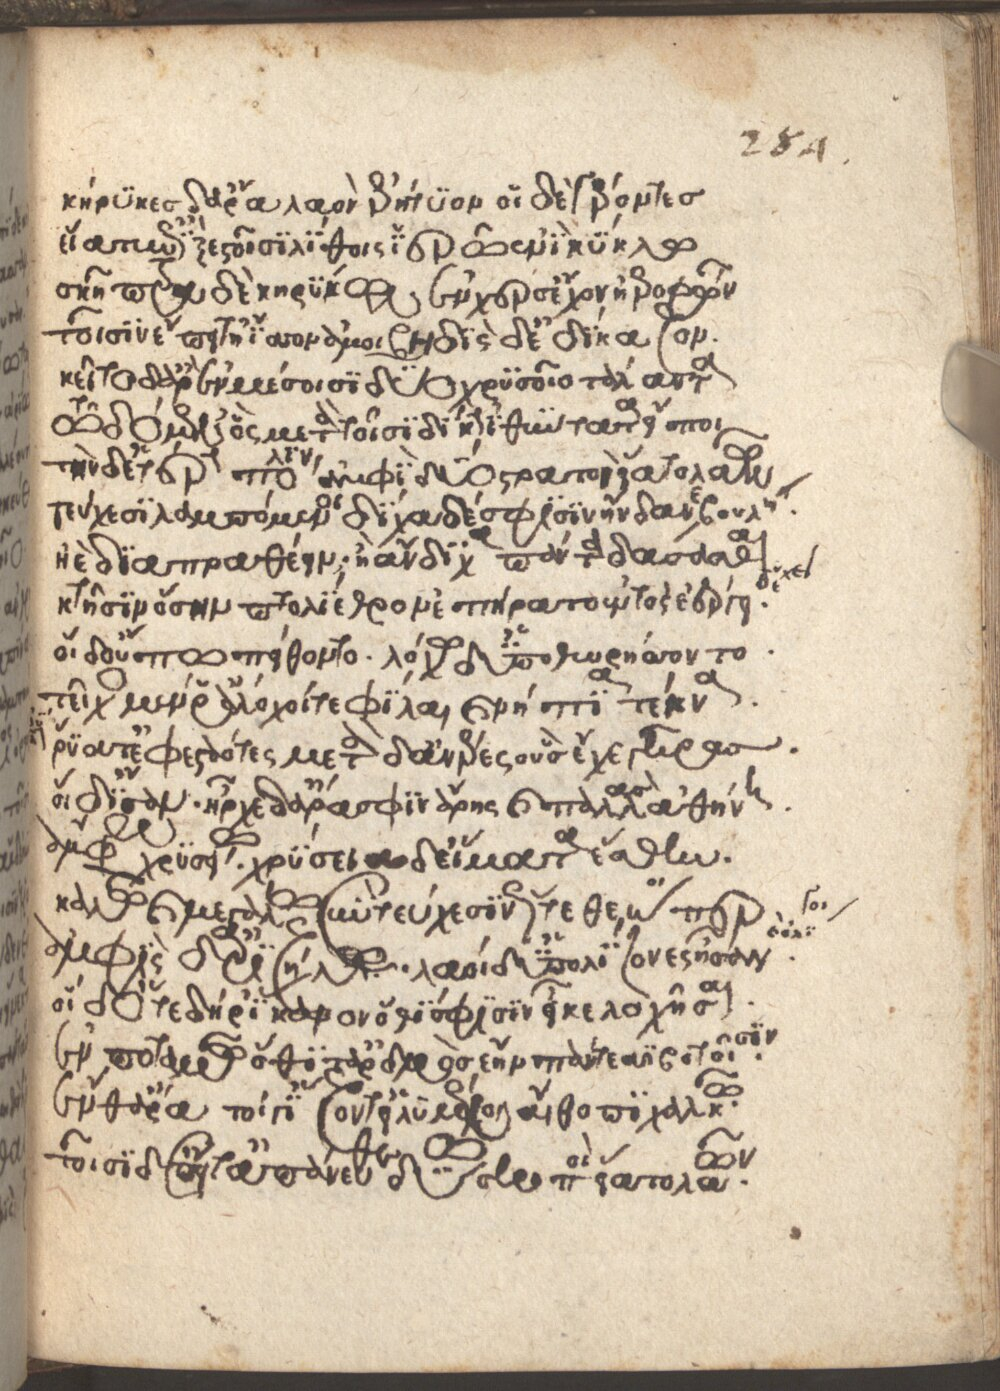 284.
κήρϋκες δ' ἄρα λαὸν ἐρήτϋον οἱ δὲ γέροντες
εἵατ' ἐπὶ ξεστοῖσϊ λΐθοις ἱερῷ ἐνὶ κΰκλω
σκῆπτρα δὲ κηρΰκων ἐν χερσ' ἔχον ἠεροφώνων
τοῖσϊν ἔπειτ' ἤϊσσον ἀμοιβηδὶς δὲ δΐκαζον.
κεῖτο δ' ἄρ' ἐν μέσοισϊ δΰο χρϋσοῖο τάλαντα
τῷ δόμεν ὃς μετὰ τοῖσϊ δΐκην ἰθΰντατα εἴποι
τὴν δ' ἑτέρην πόλϊν ἀμφὶ δΰο στρατοὶ εἵατο λαῶν
τεύχεσϊ λαμπόμενοι δΐχα δέ σφϊσϊν ἥνδανε βουλή.
ἠὲ δϊαπραθέειν. ἢ ἄνδϊχα πάντα δάσασθαι
κτῆσϊν ὅσην πτολΐεθρον ἐπήρατον ἐντὸς ἐέργει.
οἱ δ' οὔπω πείθοντο. λόχω δ' ὑπεθωρήσσοντο.
τεῖχος μέν ῥ' ἄλοχοί τε φΐλαι καὶ νήπϊα τέκνα.
ῥύατ' ἐφεσταότες μετὰ δ' ἀνέρες οὓς ἔχε γῆρας.
οἱ δ' ἴσαν. ἦρχε δ' ἄρα σφϊν ἄρης καὶ παλλὰς ἀθήνη.
ἄμφω χρϋσείω. χρΰσεια δὲ εἵματα ἕσθην.
καλὼ καὶ μεγάλω σὺν τεύχεσϊν ὥς τε θεώ περ
ἀμφὶς ἀρϊζήλω. λαοὶ δ' ὑπολΐζονες ἦσαν.
οἱ δ' ὅτε δή ῥ' ἵκανον ὅθϊ σφΐσϊν εἶκε λοχῆσαι.
ἐν ποταμῷ ὅθϊ τ' ἀρδμὸς ἔην πάντεσσϊ βοτοῖσϊν.
ἔνθ' ἄρα τοί γ' ἵζοντ' εἰλυμένοι αἴθοπϊ χαλκῷ.
τοῖσϊ δ' ἔπειτ' ἀπάνευθε δΰω σκοποὶ εἵατο λαῶν.